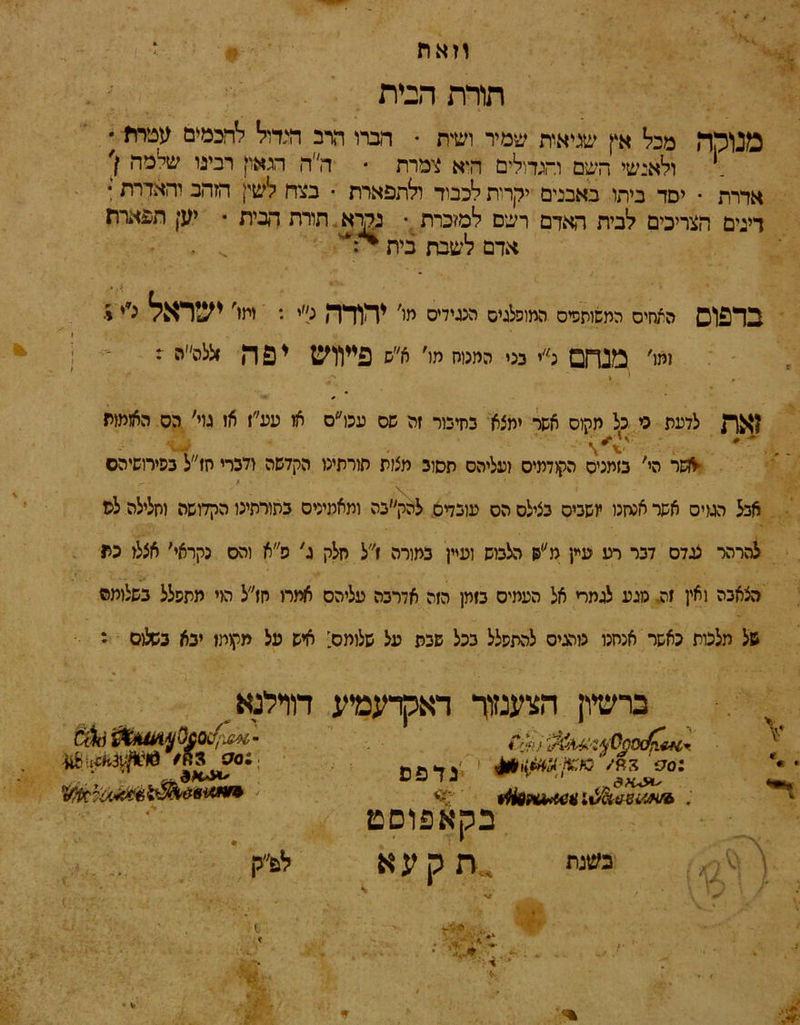 וזאת
תורת הבית
מנוקה מכל אין שגיאית שמיר ושית • חברו הרב הגדול לחכמים עטרת •
ולאנשי השם והגדולים היא צמרת • ה"ה הגאון רבינו שלמה ן'
אדרת • יסד ביתו באבנים יקרות לכבוד ולתפארת • בצח לשון הזהב והאדרת :
דינים הצריכים לבית האדם רשם למזכרת • נקרא תורת הבית • יען תפארת
אדם לשבת בית :
בדפוס האחים המשותפים המופלגים הנגידים מו' יהודה נ"י : ומו' ישראל נ"י ;
ומו' מנחם נ"י בני המנוח מו' א"ש פייווש יפה זללה"ה :
זאת לדעת כי כל מקום אשר ימצא בחיבור זה שם עכו"ם או עע"ז או גוי' הם האומות
אשר הי' בזמנים הקודמים ועליהם תסוב מצות תורתינו הקדשה ודברי חז"ל בפירושיהם
אבל הגוים אשר אנחנו יושבים בצילם הם עובדים להק"בה ומאמינים בתורתינו הקדושה וחלילה לנו
להרהר נגדם דבר רע עיין מ"ש הלבוש ועיין במורה ז"ל חלק ג' פ"א והם נקראי' אצלו כת
הצאבה ואין זה נוגע לגמרי אל העמים בזמן הזה אדרבה עליהם אמרו חז"ל הוי מתפלל בשלומם
של מלכות כאשר אנחנו נוהגים להתפלל בכל שבת על שלומם: איש על מקומו יבא בשלום :
ברשיון הצענזור דאקדעמיע דווילנא
נדפס
בקאפוסט
בשנת תקעא לפ"ק